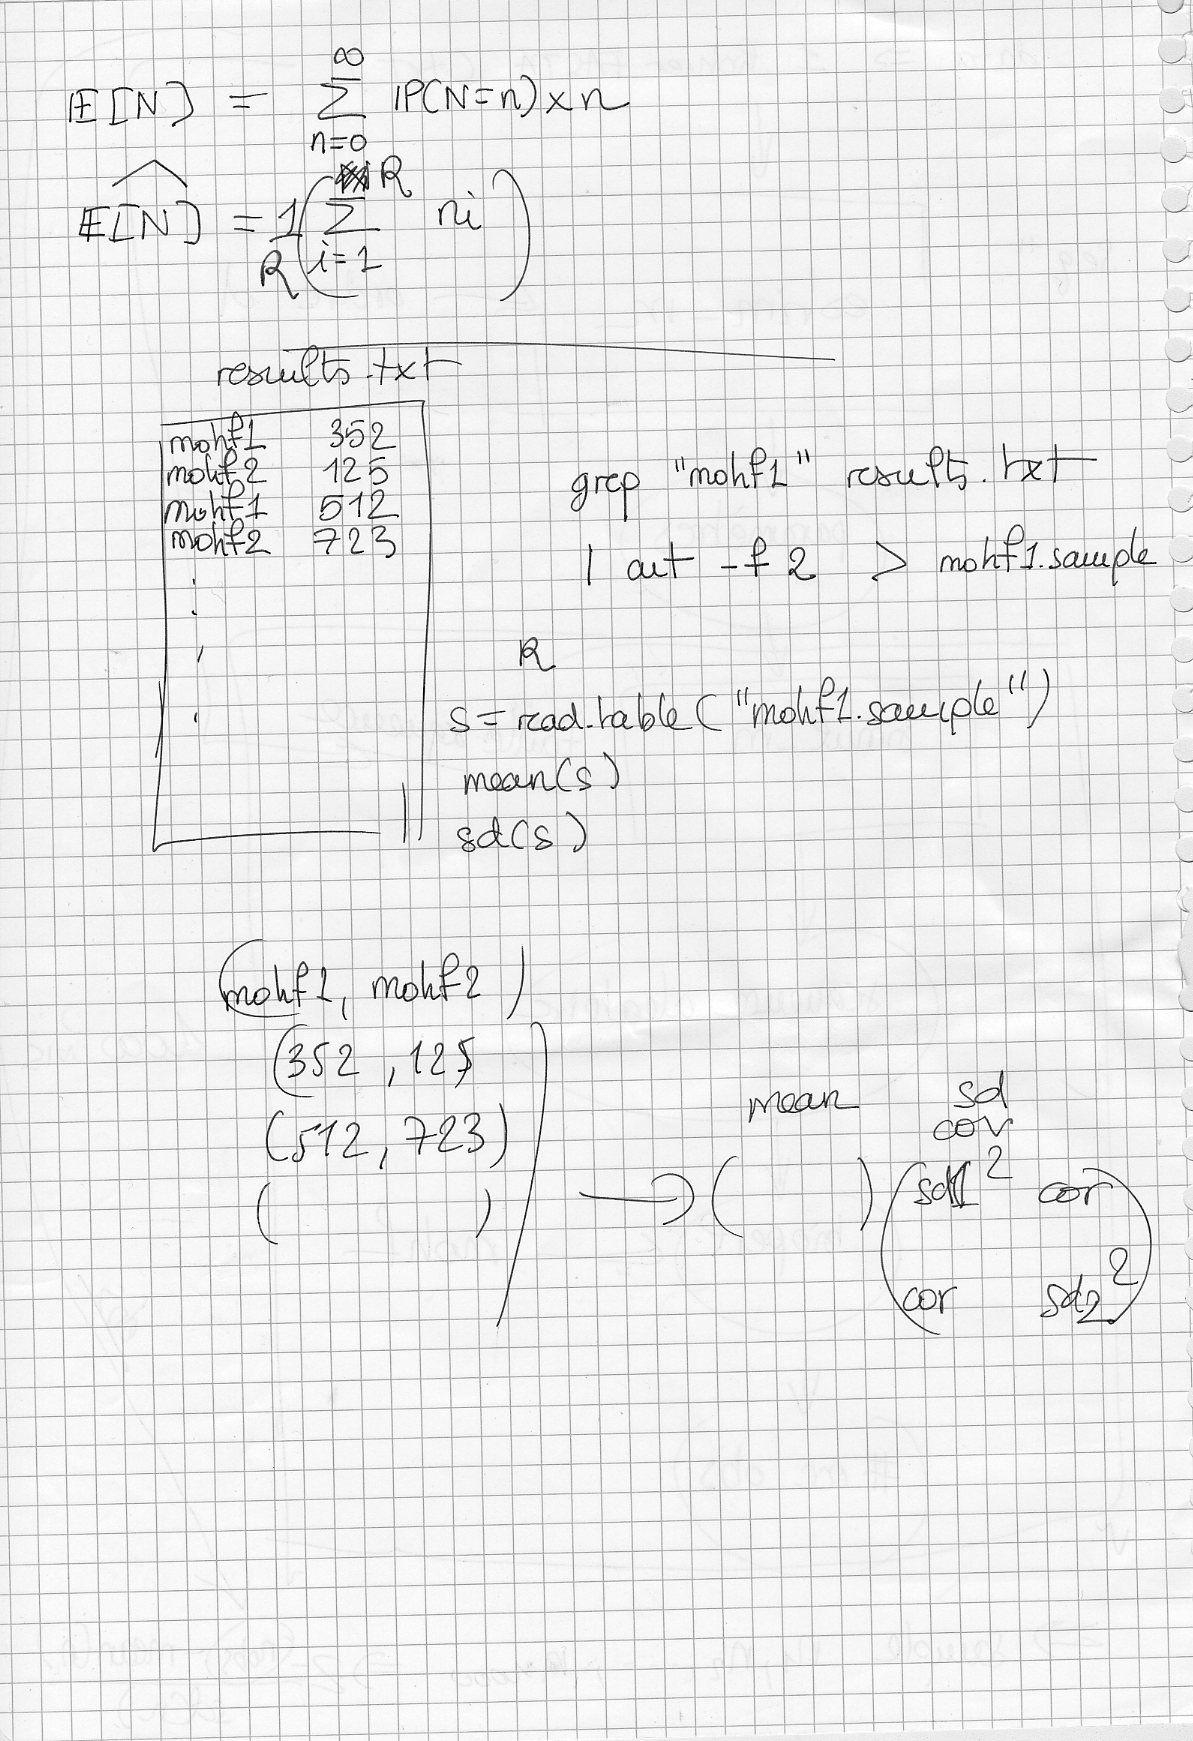 E[N] = ∞ Σ n=0 P(N=n) x n
Ê[N] = 1/R ( R Σ i=1 ni )
results.txt
mohf1 352
mohf2 125
mohf1 512
mohf2 723
grep "mohf1" results.txt
| cut -f 2 > mohf1.sample
R
s = read.table("mohf1.sample")
mean(s)
sd(s)
(mohf1, mohf2)
(352, 125
(512, 723)
( )
mean sd
cov
→ ( ) (sd1² cor
cor sd2²)